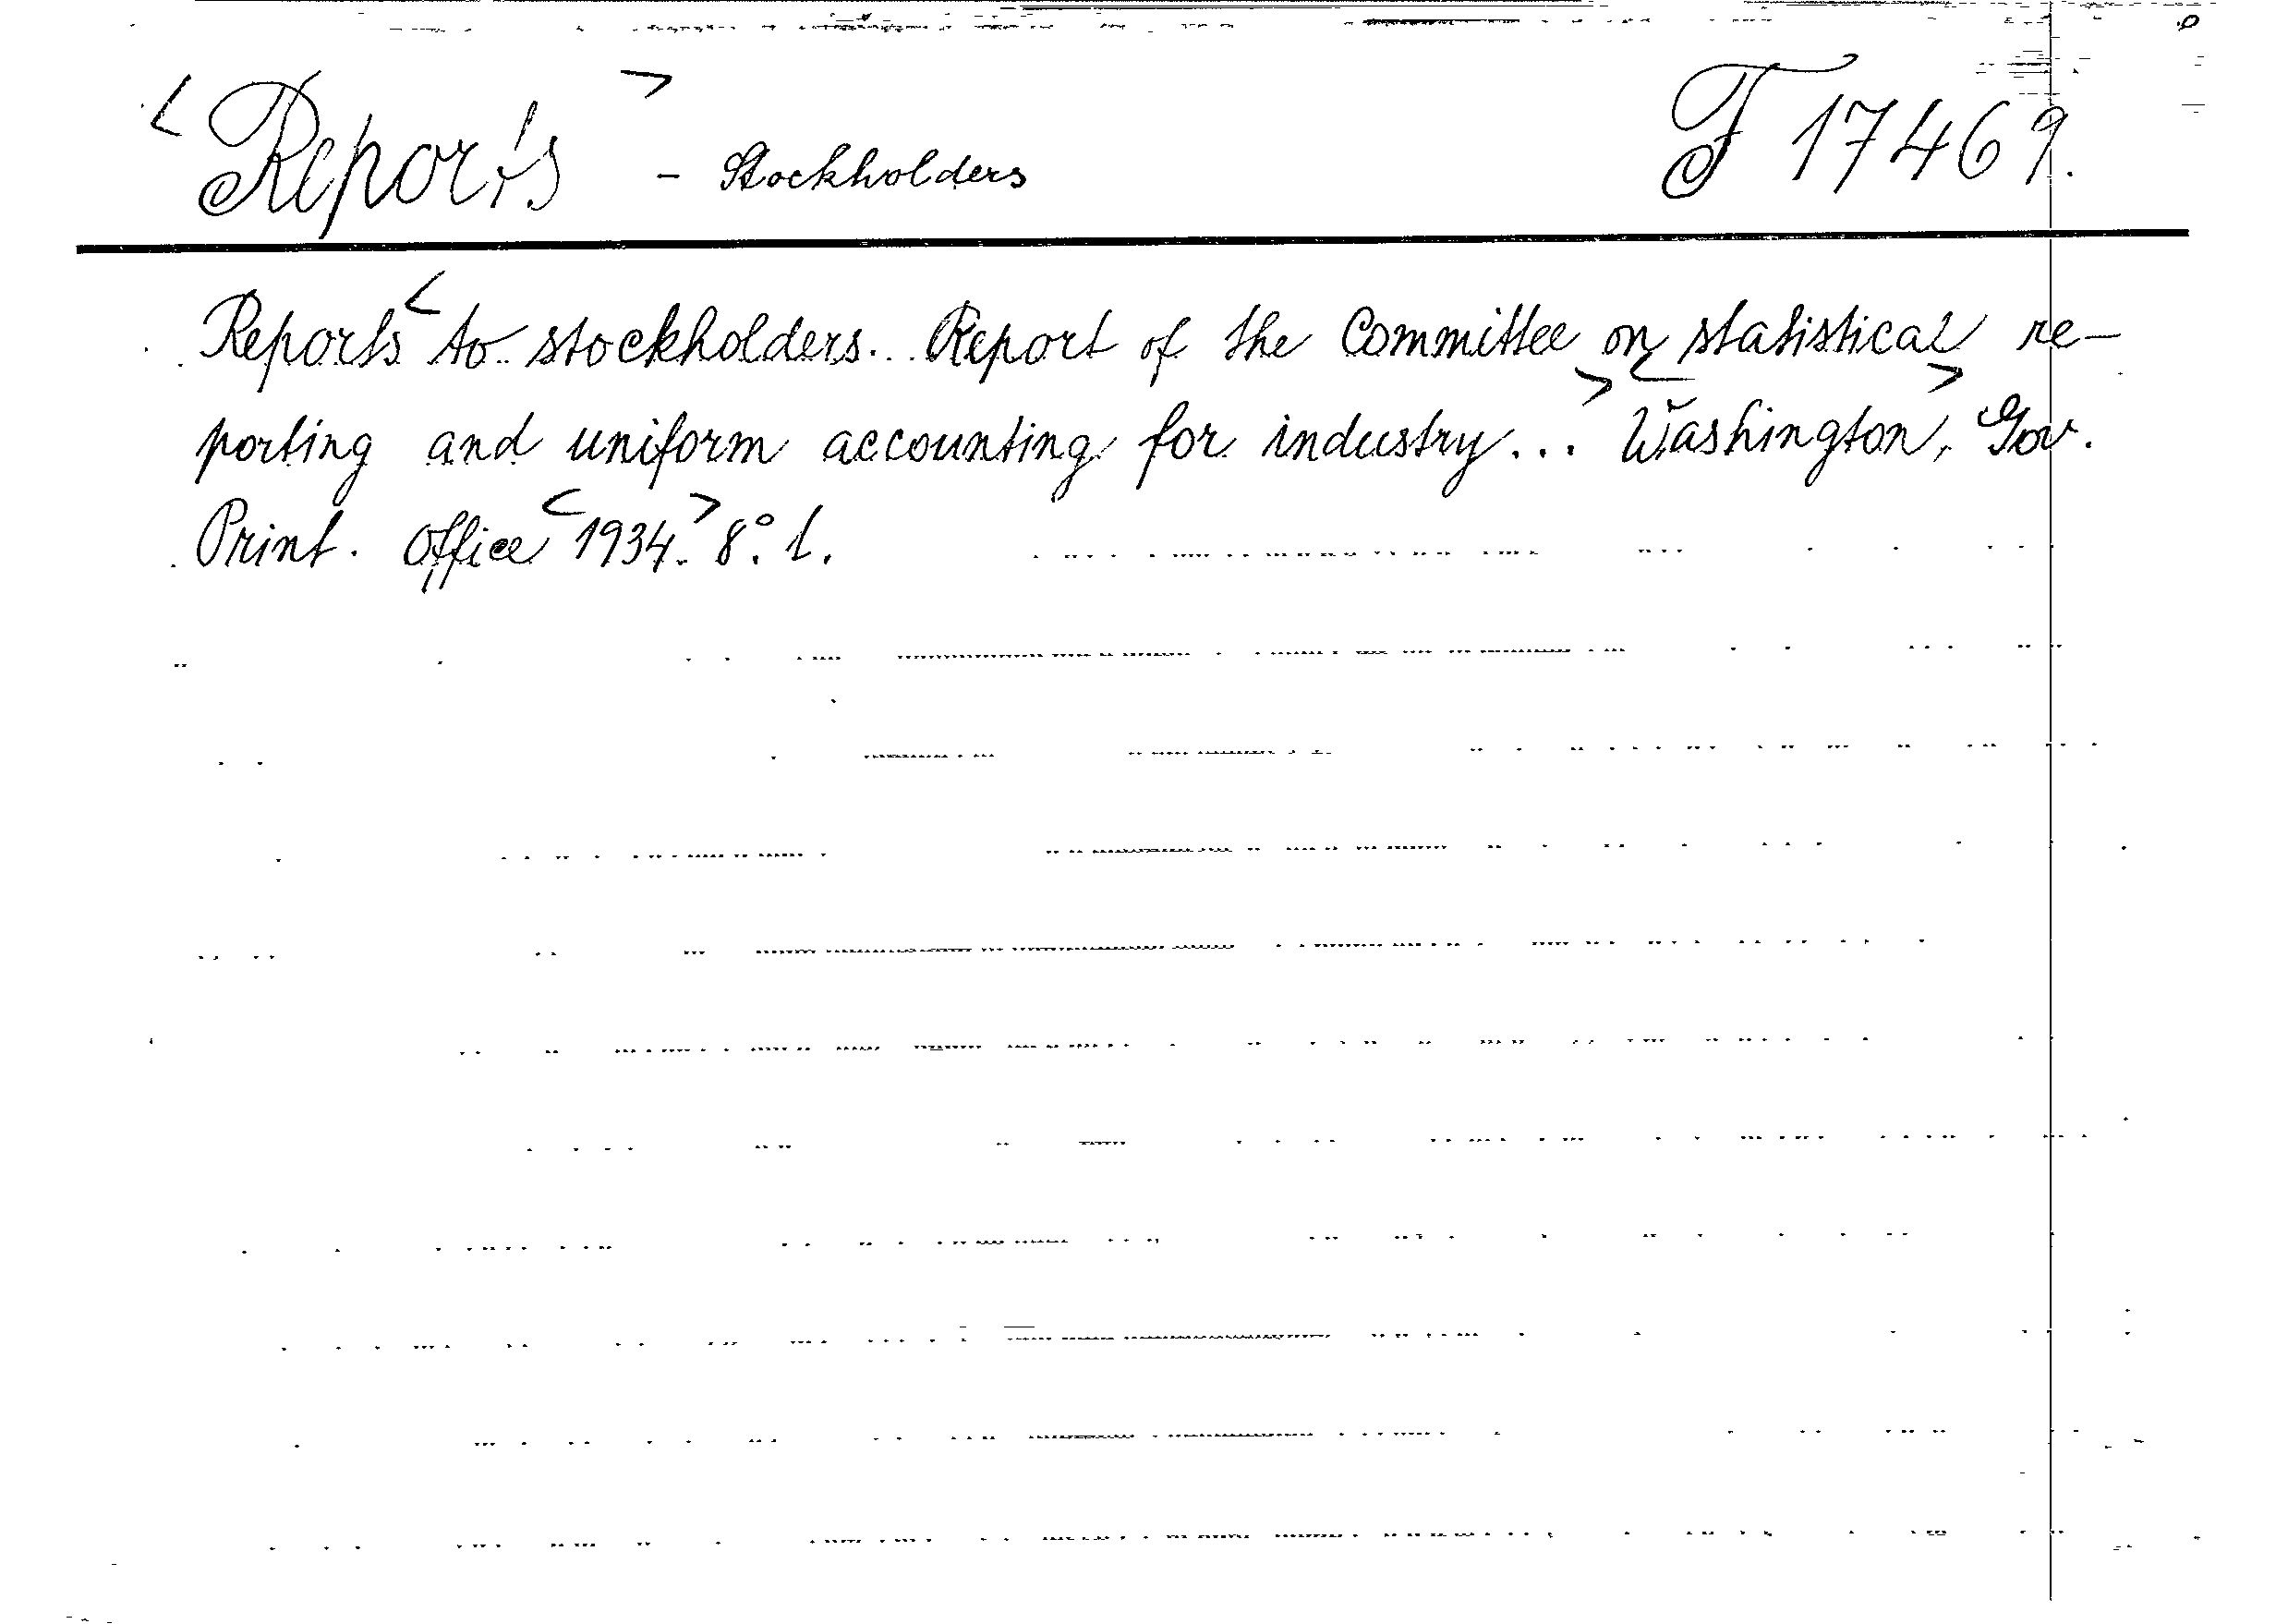 <Reports> - Stockholders F 17469.
Reports< to stockholders... Report of the Committee on statistical re-
porting and uniform accounting for industry...> <Washington>, Gov.
Print. Office <1934.> 8°. l.